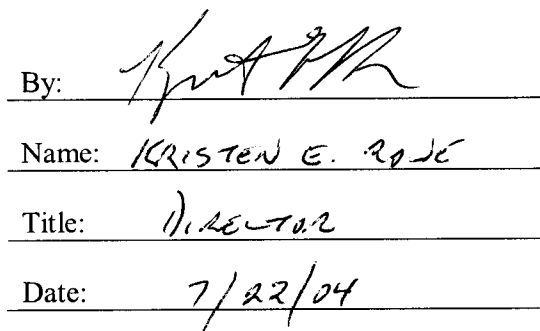 By:
Name: KRISTEN E.
Title: DIRECTOR
Date: 7/22/04